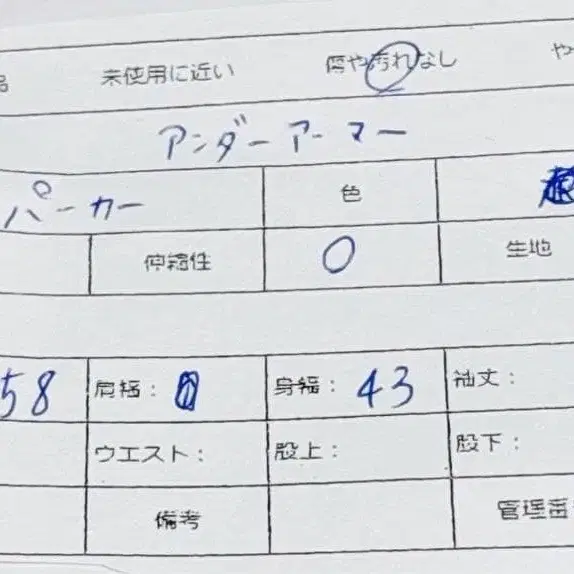 品 未使用に近い 傷や汚れなし や
アンダーアーマー
パーカー 色
伸縮性 〇 生地
58 肩幅: 身幅: 43 袖丈:
ウエスト: 股上: 股下:
備考 管理番